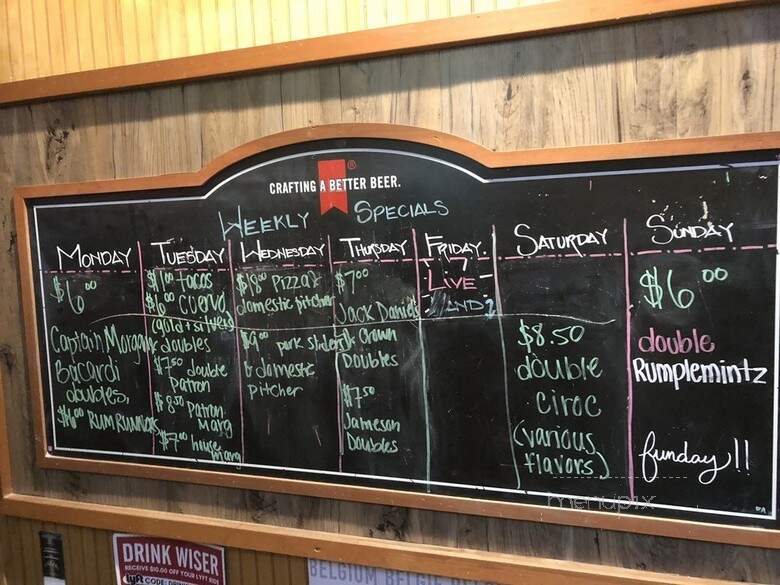 CRAFTING A BETTER BEER.
WEEKLY SPECIALS
MONDAY
$6.00
Captain Morgan
Bacardi
doubles,
$6.00 RUM RUNNERS
TUESDAY
$1.00 tacos
$6.00 cuervo
(gold + silver)
doubles
$7.50 double
Patron
$8.50 Patron
Marg
$7.00 house
marg
WEDNESDAY
$18.00 Pizza &
domestic pitcher
$9.00 pork sliders
& domestic
pitcher
THURSDAY
$7.00
Jack Daniels
Crown
Doubles
$7.50
Jameson
Doubles
FRIDAY
LIVE
SATURDAY
$8.50
double
CIROC
(various
flavors)
SUNDAY
$6.00
double
Rumplemintz
funday!!
menupix
DRINK WISER
RECEIVE $10.00 OFF YOUR LYFT RIDE
lyft CODE:
BELGIUM